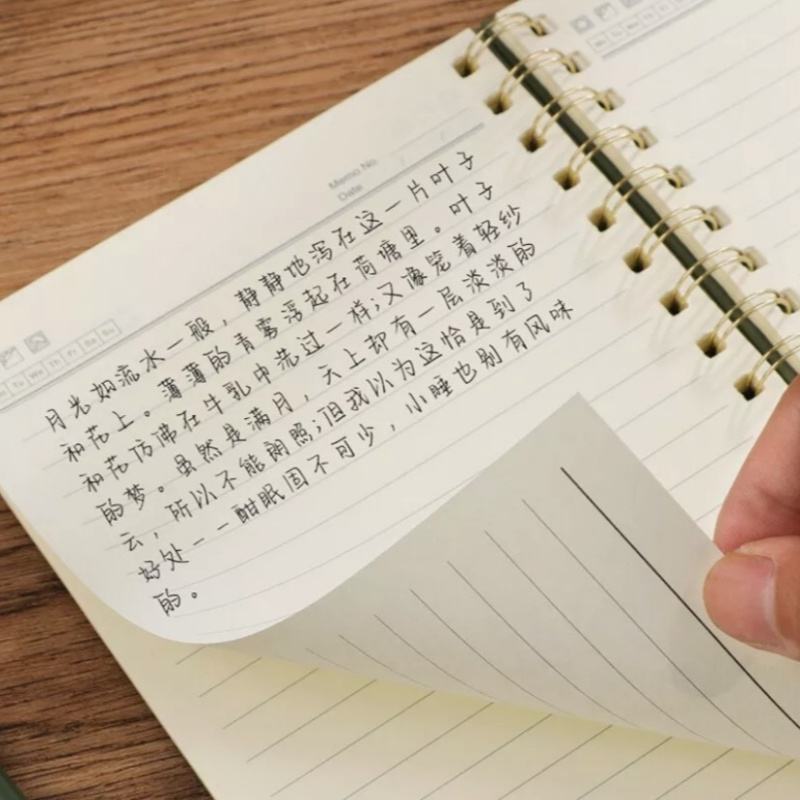 Memo No.
Date
Mo Tu We Th Fr Sa Su
月光如流水一般，静静地泻在这一片叶子
和花上。薄薄的青雾浮起在荷塘里。叶子
和花仿佛在牛乳中洗过一样;又像笼着轻纱
的梦。虽然是满月，天上却有一层淡淡的
云，所以不能朗照;但我以为这恰是到了
好处——酣眠固不可少，小睡也别有风味
的。